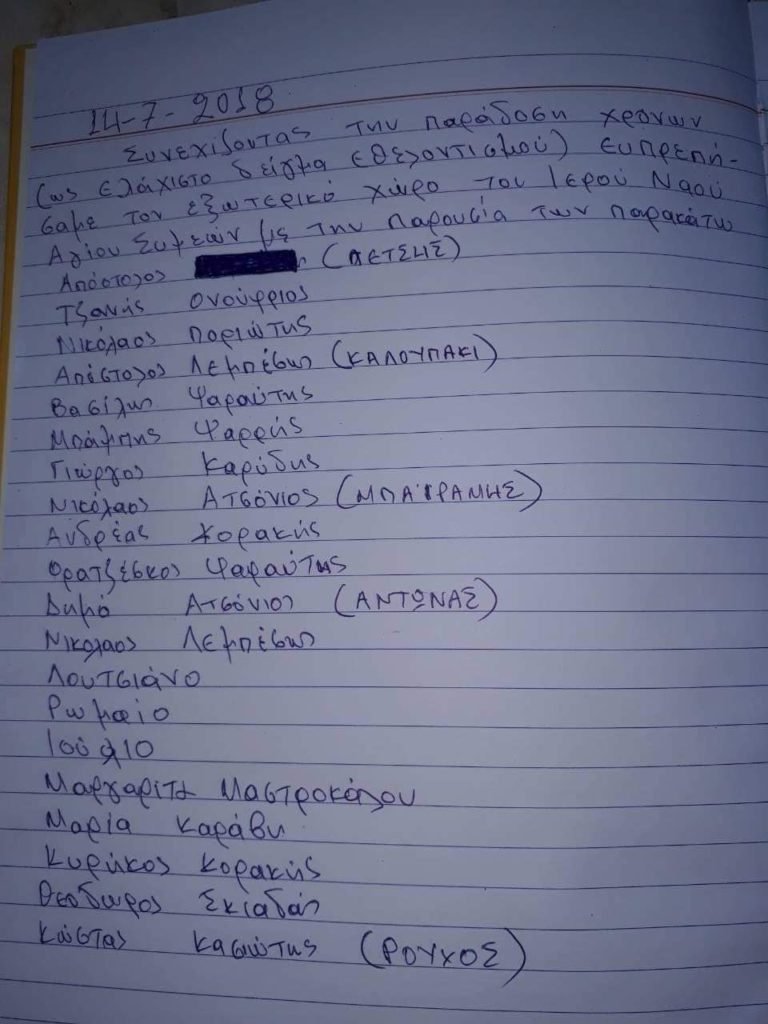 14-7-2018
Συνεχίζοντας την παράδοση χρονων
(ως ελάχιστο δείγμα εθελοντισμού) ευπρεπή-
σαμε τον εξωτερικό χώρο του Ιερού Ναού
Αγίου Συμεών με την παρουσία των παρακάτω
Απόστολος (ΠΕΤΣΗΣ)
Τζανής Ονούφριος
Νικόλαος Ποριώτης
Απόστολος Λεμπέσης (ΚΑΛΟΥΠΑΚΙ)
Βασίλης Ψαραύτης
Μπάμπης Ψαρρής
Γιώργος Καρύδης
Νικόλαος Ατσόνιος (ΜΠΑΪΡΑΜΗΣ)
Ανδρέας Κορακής
Φρατζέσκος Ψαραύτης
Δημό Ατσόνιος (ΑΝΤΩΝΑΣ)
Νικολαος Λεμπέσης
Λουτσιάνο
Ρωμαίο
Ιούλιο
Μαργαρίτα Μαστροκόλου
Μαρία Καράβη
Κυρήκος Κορακής
Θεοδωρος Σκιαδάς
Κώστας Κασιώτης (ΡΟΥΧΟΣ)